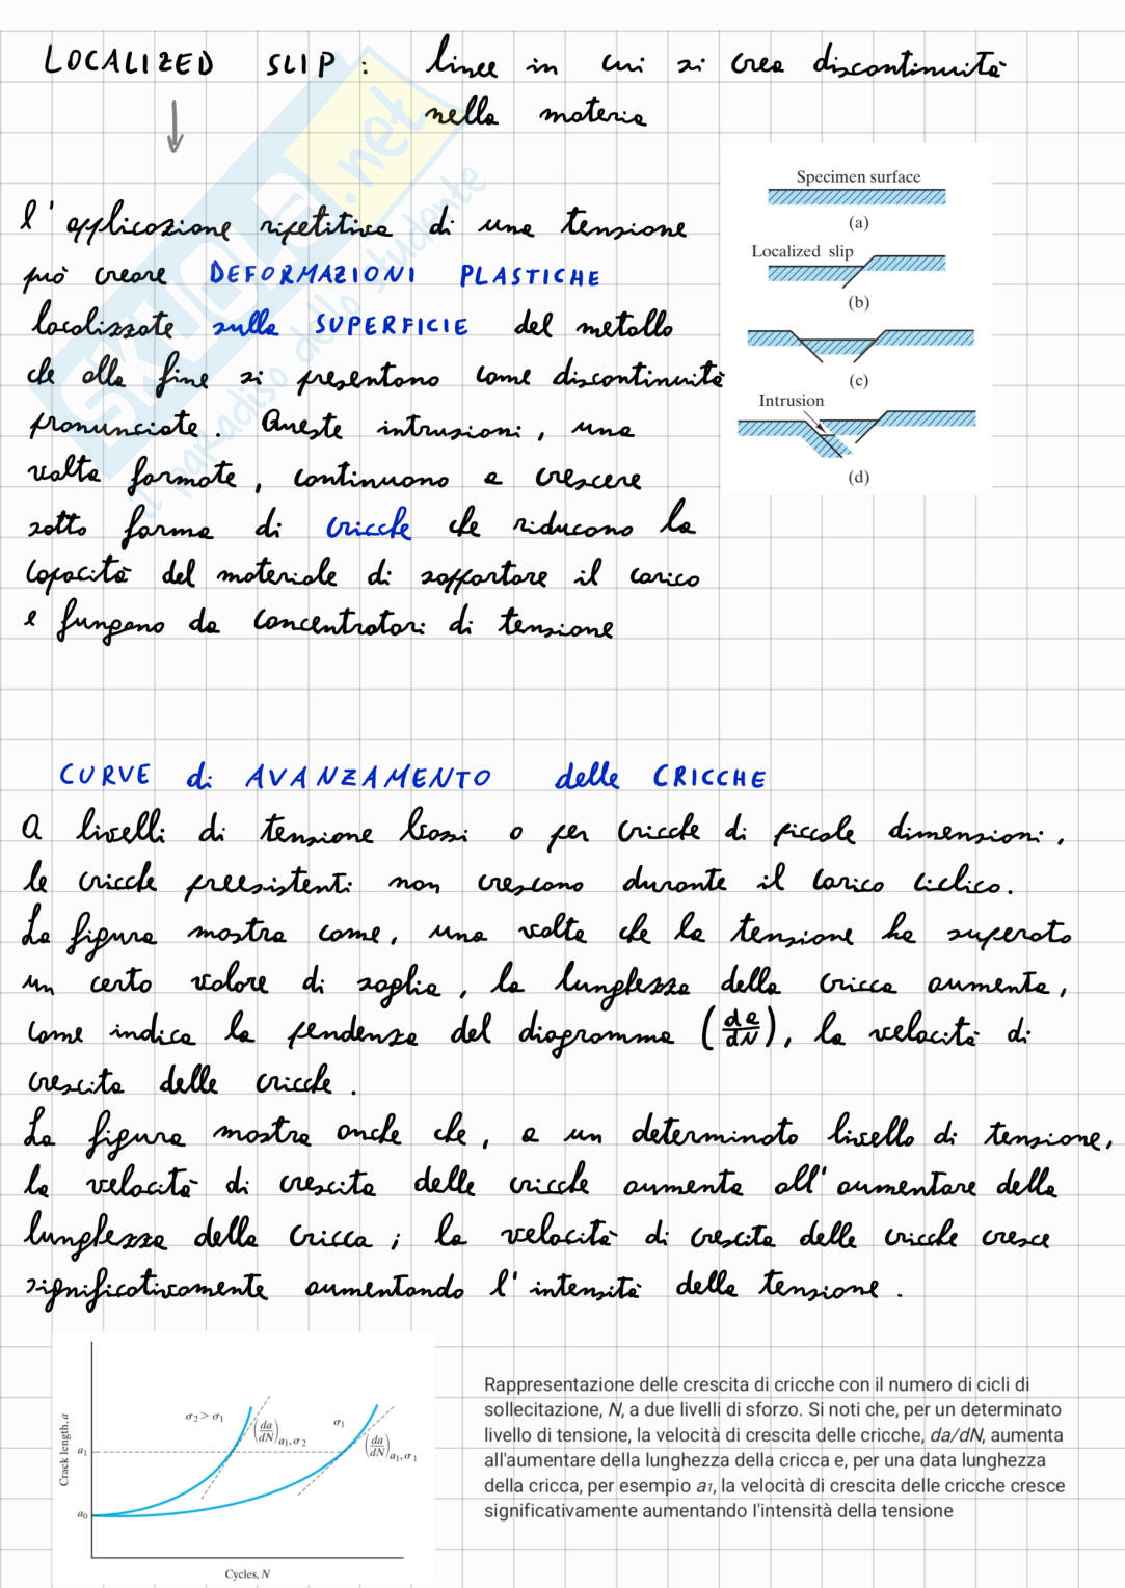 LOCALIZED SLIP : linee in cui si crea discontinuità
nella materia
l'applicazione ripetitiva di una tensione
può creare DEFORMAZIONI PLASTICHE
localizzate sulla SUPERFICIE del metallo
che alla fine si presentono come discontinuità
pronunciate. Queste intrusioni, una
volta formate, continuono a crescere
sotto forma di cricche che riducono la
capacità del materiale di sopportare il carico
e fungono da concentratori di tensione
Specimen surface
(a)
Localized slip
(b)
(c)
Intrusion
(d)
SKUOLA.net
il paradiso dello studente
CURVE di AVANZAMENTO delle CRICCHE
A livelli di tensione bassi o per cricche di piccole dimensioni,
le cricche preesistenti non crescono durante il carico ciclico.
La figura mostra come, una volta che la tensione ha superato
un certo valore di soglia, la lunghezza della cricca aumenta,
come indica la pendenza del diagramma (da/dN), la velocità di
crescita delle cricche.
La figura mostra anche che, a un determinato livello di tensione,
la velocità di crescita delle cricche aumenta all'aumentare della
lunghezza della cricca; la velocità di crescita delle cricche cresce
significativamente aumentando l'intensità della tensione.
Crack length, a
σ2 > σ1
σ1
(da/dN) a1, σ2
(da/dN) a1, σ1
a1
a0
Cycles, N
Rappresentazione delle crescita di cricche con il numero di cicli di
sollecitazione, N, a due livelli di sforzo. Si noti che, per un determinato
livello di tensione, la velocità di crescita delle cricche, da/dN, aumenta
all'aumentare della lunghezza della cricca e, per una data lunghezza
della cricca, per esempio a1, la velocità di crescita delle cricche cresce
significativamente aumentando l'intensità della tensione